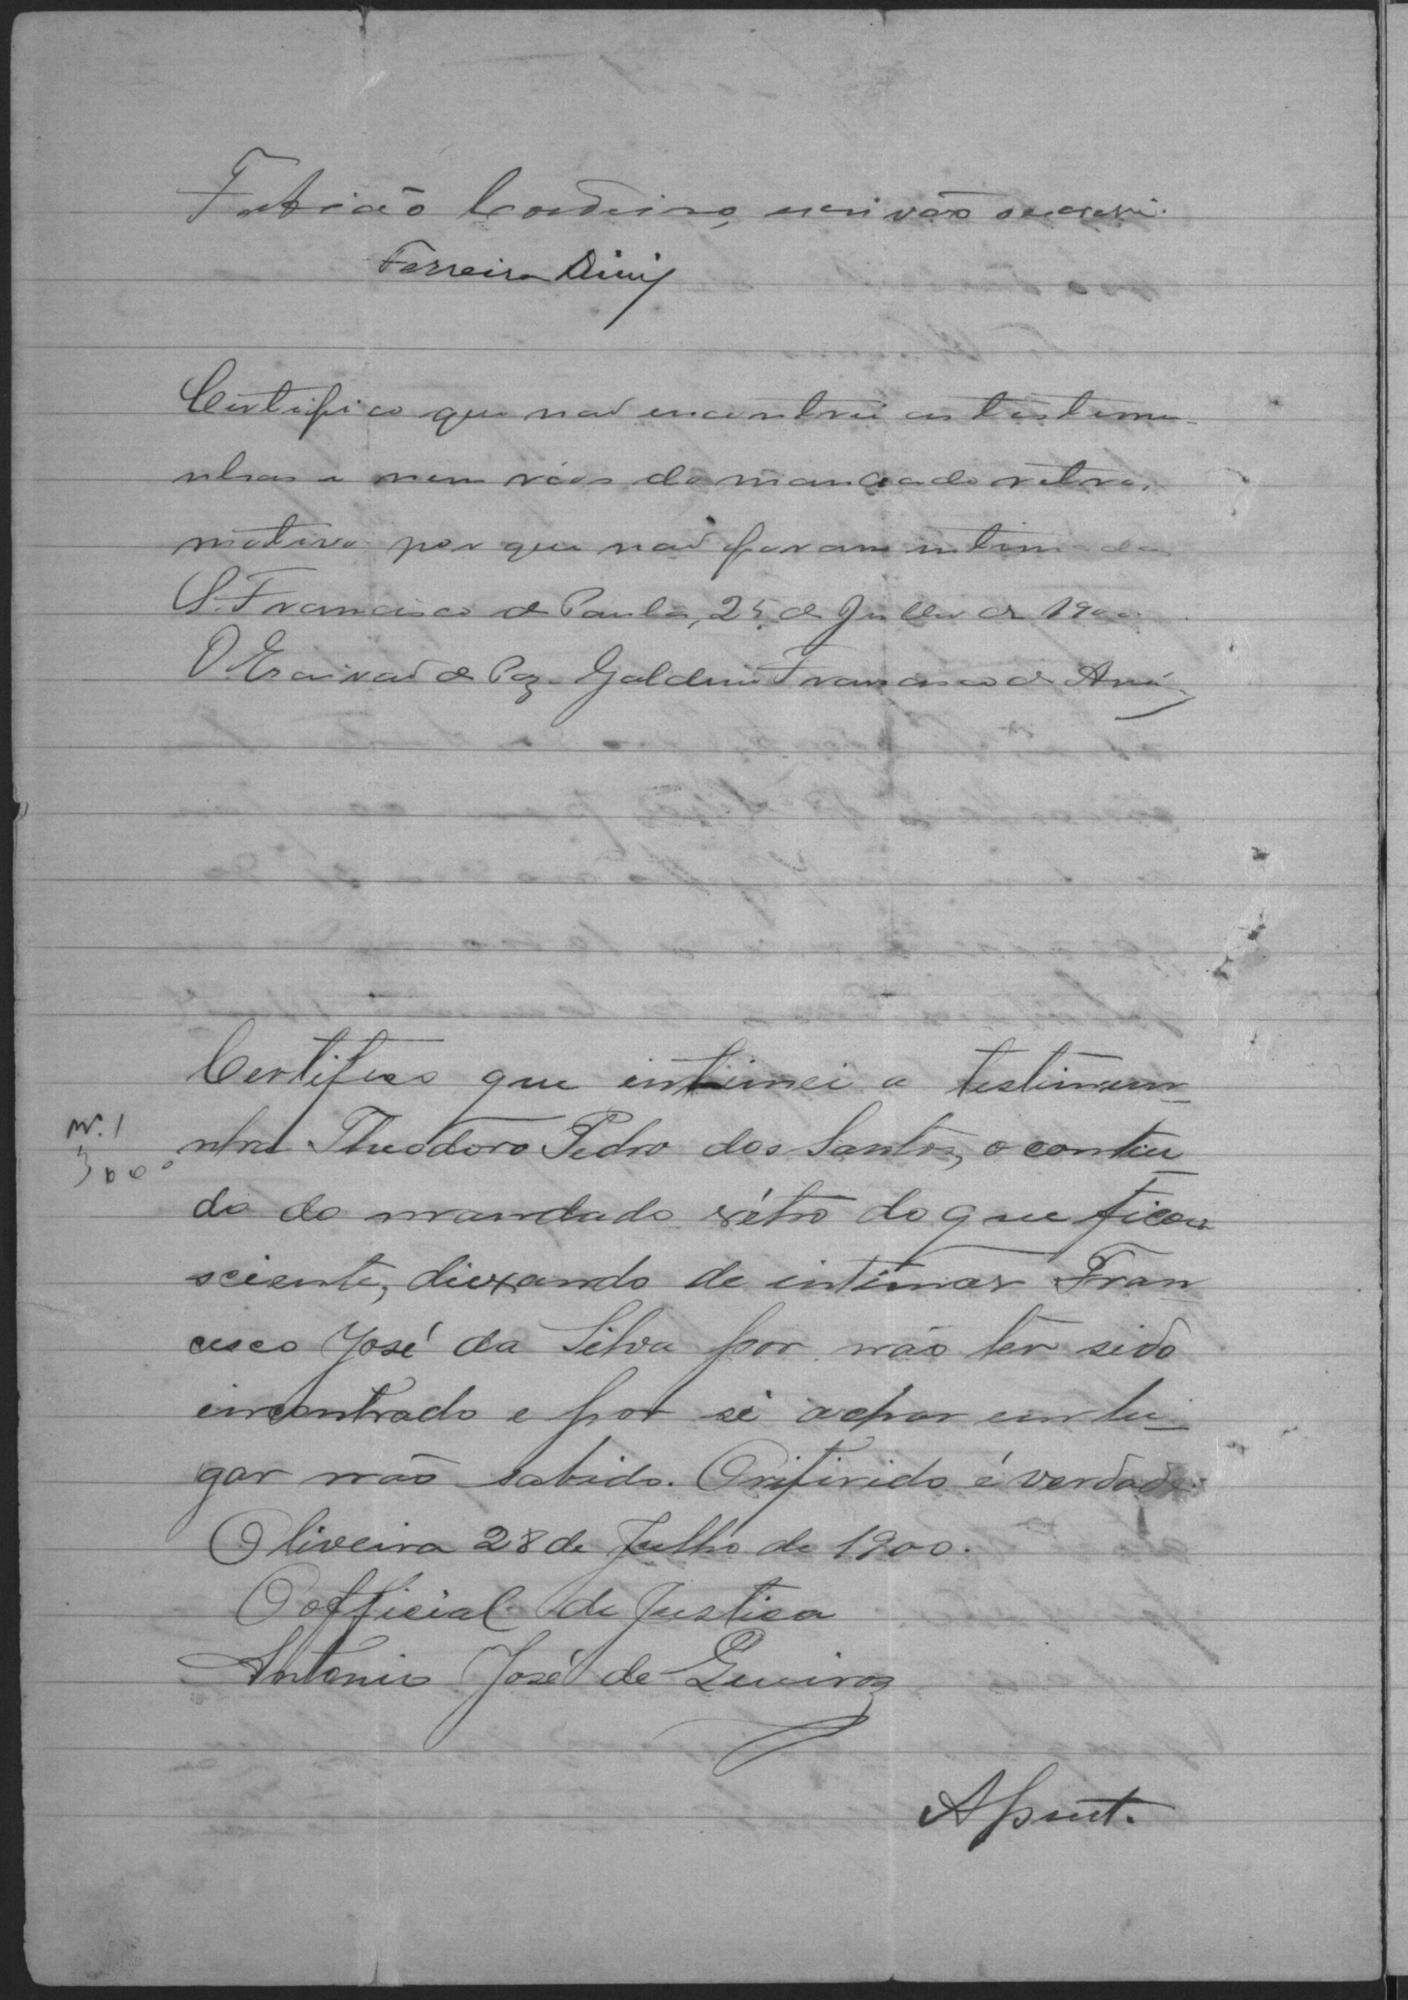 Fabião Cordeiro, escrivão o escrevi.
Ferreira Diniz
Certifico que naõ encontrei as testemu-
nhas e nem réos do mandado retro,
motivo por que naõ foram intimados
S. Francisco de Paula, 25 de Julho de 1900
O Escrivaõ de Paz Galdino Francisco de
Certifico que intimei a testimun-
nha Theodoro Pedro dos Santos, o conteu-
do do mandado rétro do que ficou
sciente, diexando de intimar Fran
cisco José da Silva por não ter sido
incontrado e por si achar em lu-
gar não sabido. Oriferido é verdade.
Oliveira 28 de Julho de 1900.
O official de Justica
Antonio José de Queiroz
N. 1
3000